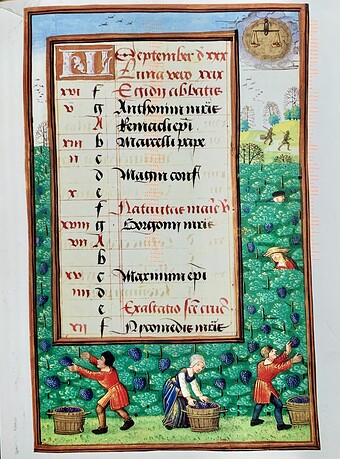 KL September d xxx
Luna vero xxix
xvi f Egidij abbatis
v g Anthonini mr̃is
A Remacli ep̃i
xiii b Marcelli pape
ii c
d Magni conf
x e
f Natiuitas marie v̾
xviii g Gorgoni mr̃is
vii A
b
xv c Maximini ep̃i
iiii d
e Exaltatio sc̃e crucis
xii f Nycomedis mr̃is